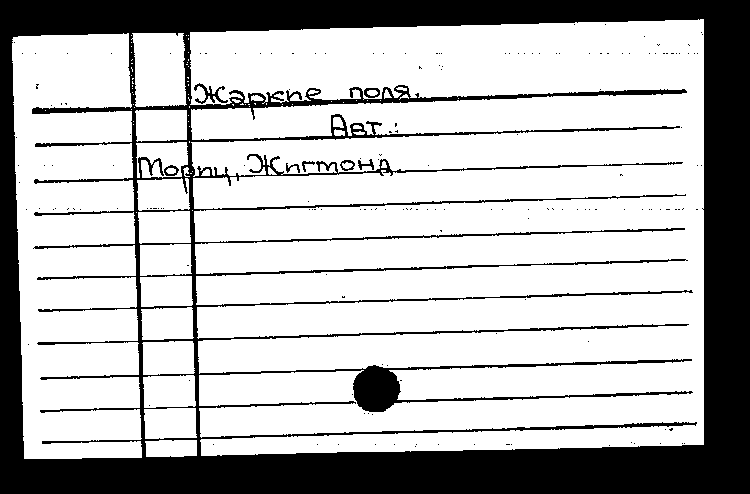 Жаркие поля.
Авт.:
Мориц, Жигмонд.